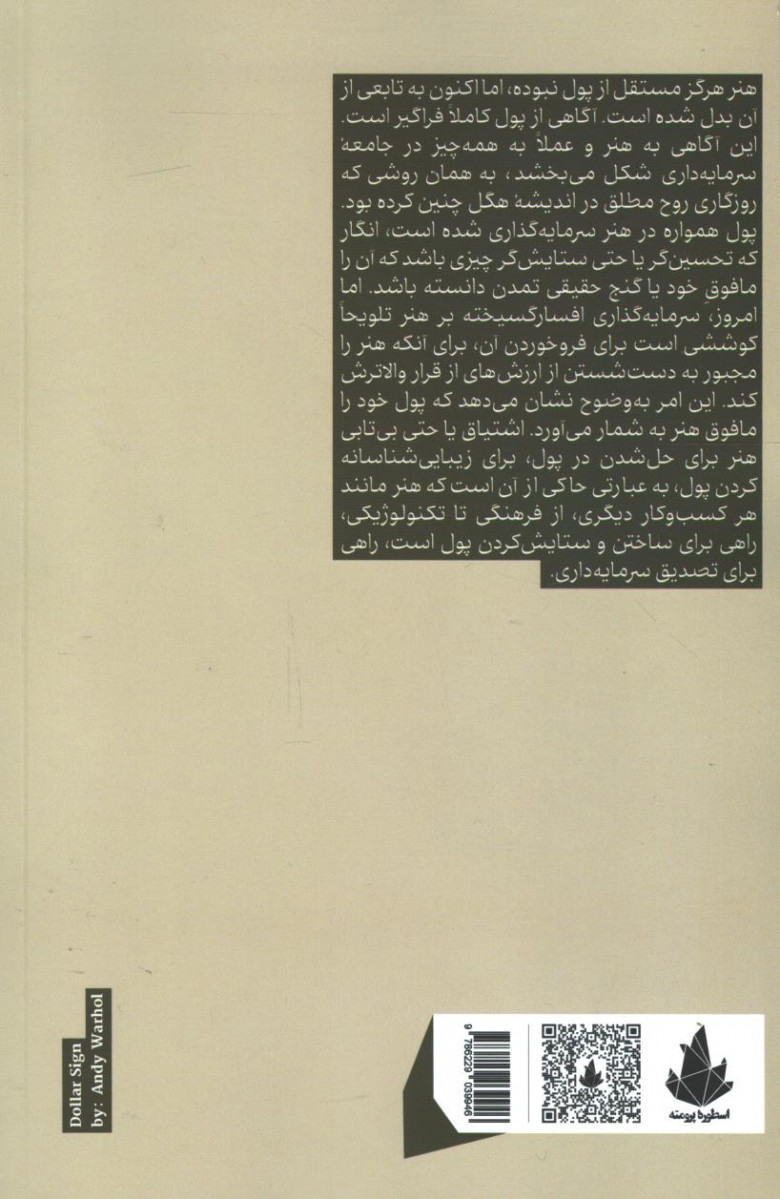 هنر هرگز مستقل از پول نبوده، اما اکنون به تابعی از
آن بدل شده است. آگاهی از پول کاملاً فراگیر است.
این آگاهی به هنر و عملاً به همه‌چیز در جامعهٔ
سرمایه‌داری شکل می‌بخشد، به همان روشی که
روزگاری روح مطلق در اندیشهٔ هگل چنین کرده بود.
پول همواره در هنر سرمایه‌گذاری شده است، انگار
که تحسین‌گر یا حتی ستایش‌گر چیزی باشد که آن را
مافوقِ خود یا گنج حقیقی تمدن دانسته باشد. اما
امروز، سرمایه‌گذاری افسارگسیخته بر هنر تلویحاً
کوششی است برای فروخوردن آن، برای آنکه هنر را
مجبور به دست‌شستن از ارزش‌های از قرار والاترش
کند. این امر به‌وضوح نشان می‌دهد که پول خود را
مافوق هنر به شمار می‌آورد. اشتیاق یا حتی بی‌تابی
هنر برای حل‌شدن در پول، برای زیبایی‌شناسانه
کردن پول، به عبارتی حاکی از آن است که هنر مانند
هر کسب‌وکار دیگری، از فرهنگی تا تکنولوژیکی،
راهی برای ساختن و ستایش‌کردن پول است، راهی
برای تصدیق سرمایه‌داری.
Dollar Sign
by: Andy Warhol
9 786229 039946
اسطورهٔ پرومته